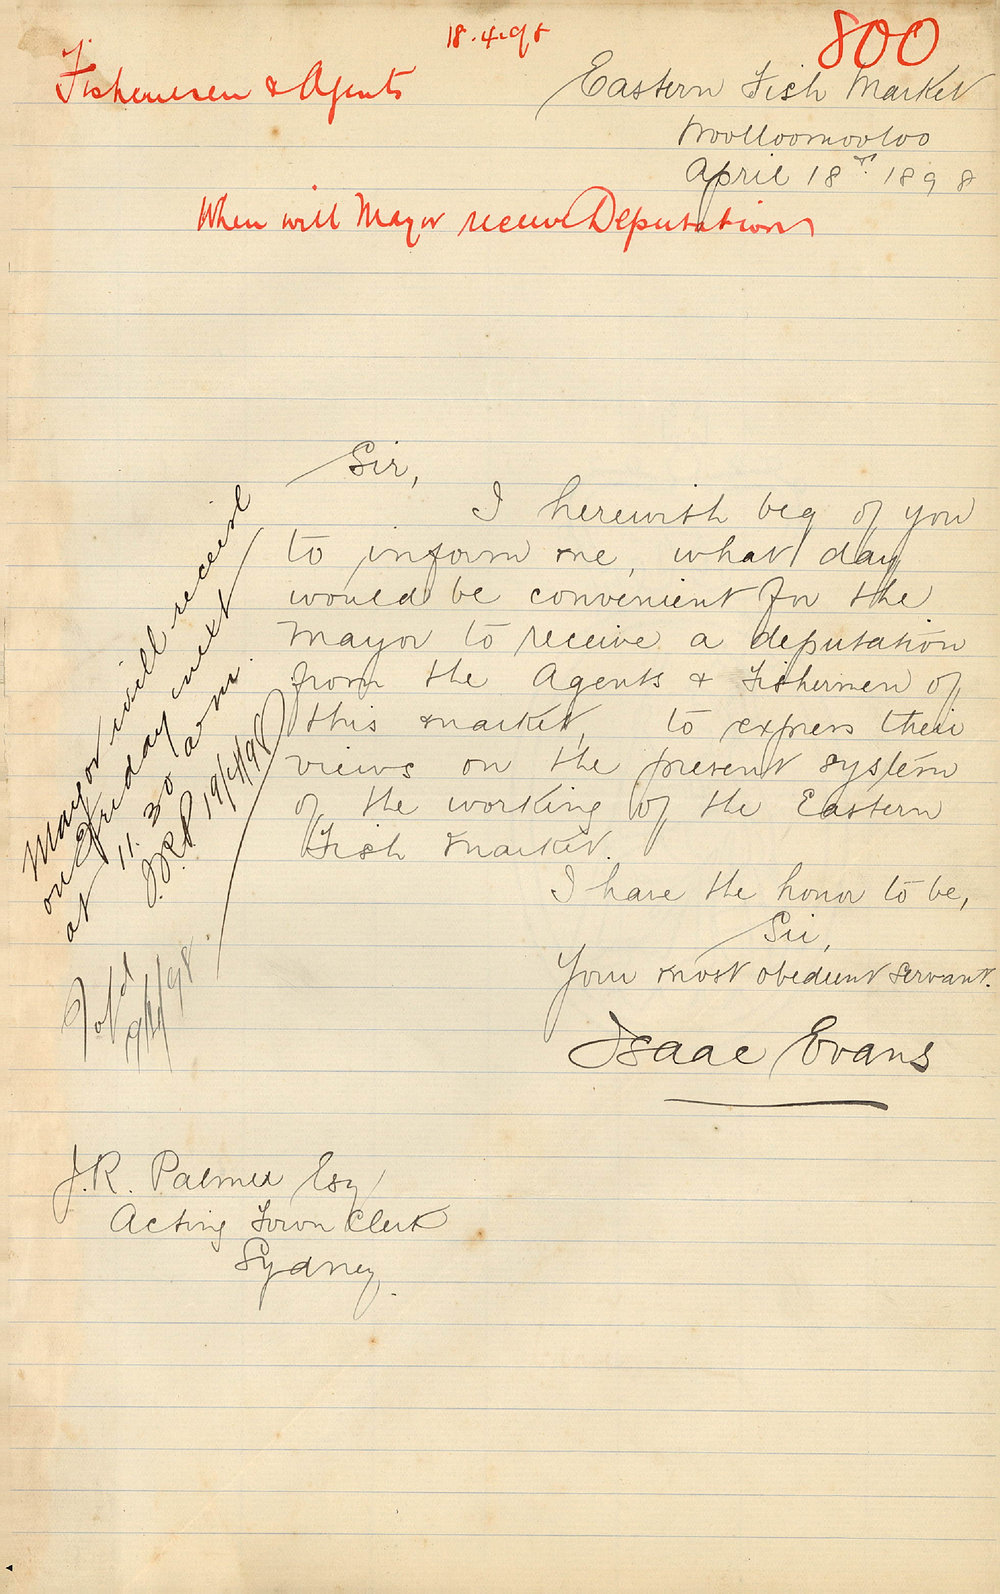 18.4.98
800
Fishermen & Agents
Eastern Fish Market
Woolloomooloo
April 18th 1898
When will Mayor receive Deputation
Sir,
I herewith beg of you
to inform me, what day
would be convenient for the
Mayor to receive a deputation
from the Agents & Fishermen of
this market, to express their
views on the present system
of the working of the Eastern
Fish Market.
I have the honor to be,
Sir,
Your most obedient servant.
Isaac Evans
J.R. Palmer Esq
Acting Town Clerk
Sydney.
Mayor will receive
on Friday next
at 11.30 a.m.
J.R.P. 19/4/98